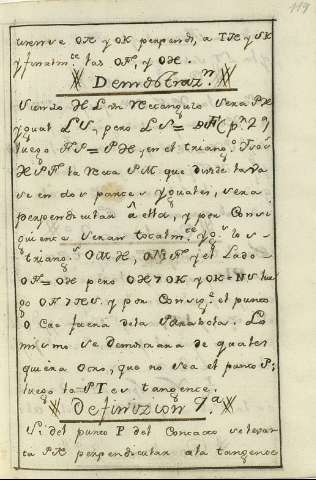 119
OK y OK perpend.s a TK y SK
y finalm.te las OF, y OH.
Demostraz.n
Siendo H L un Rectangulo sera PH
ygual LS, pero LS = (p.r 2ª)
luego FS = PH, en el triang.º
H S F la Recta PM que divide
se en dos partes yguales, sera
perpendicular á ella, y por Consi
guiente seran totalm.te yg.s los
triang.s OMH, y el Lado
OF = OH pero OH > OK y OK = NS lue
go OF > NS y por Consig.te el punto
O Cae fuera dela Parabola. Lo
mismo se demostrara de quales
quiera Otro, que no sea el punto P;
luego la PT es tangente.
Definizion 7.ª
Si del punto P del Contacto se levan
ta PR perpendicular ala tangente